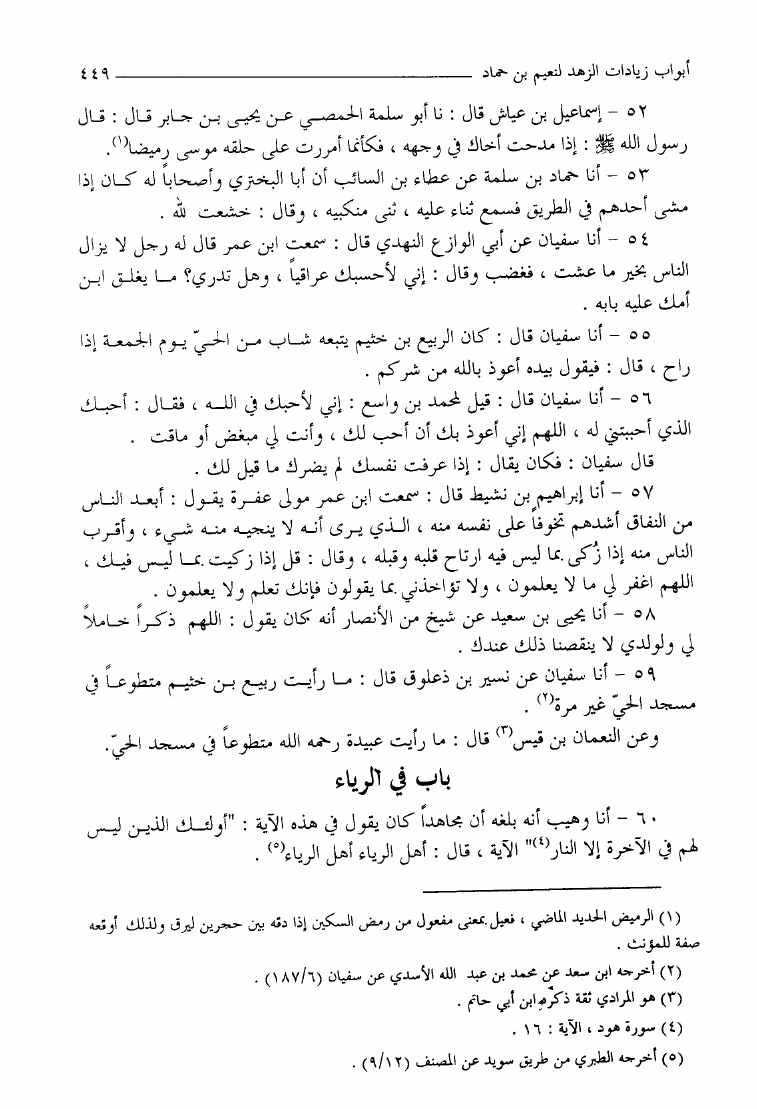 أبواب زيادات الزهد لنعيم بن حماد ــــــــــــــــــــــــــــــــ ٤٤٩
٥٢ – إسماعيل بن عياش قال : نا أبو سلمة الحمصي عن يحيى بن جابر قال : قال
رسول الله ﷺ : إذا مدحت أخاك في وجهه ، فكأنما أمررت على حلقه موسى رميضا(١).
٥٣ – أنا حماد بن سلمة عن عطاء بن السائب أن أبا البختري وأصحاباً له كان إذا
مشى أحدهم في الطريق فسمع ثناء عليه ، ثنى منكبيه ، وقال : خشعت لله .
٥٤ – أنا سفيان عن أبي الوازع النهدي قال : سمعت ابن عمر قال له رجل لا يزال
الناس بخير ما عشت ، فغضب وقال : إني لأحسبك عراقياً ، وهل تدري؟ ما يغلق ابن
أمك عليه بابه .
٥٥ – أنا سفيان قال : كان الربيع بن خثيم يتبعه شاب من الحيّ يوم الجمعة إذا
راح ، قال : فيقول بيده أعوذ بالله من شركم .
٥٦ – أنا سفيان قال : قيل لمحمد بن واسع : إني لأحبك في الله ، فقال : أحبك
الذي أحببتني له ، اللهم إني أعوذ بك أن أحب لك ، وأنت لي مبغض أو ماقت .
قال سفيان : فكان يقال : إذا عرفت نفسك لم يضرك ما قيل لك .
٥٧ – أنا إبراهيم بن نشيط قال : سمعت ابن عمر مولى عفرة يقول : أبعد الناس
من النفاق أشدهم تخوفاً على نفسه منه ، الذي يرى أنه لا ينجيه منه شيء ، وأقرب
الناس منه إذا زُكى بما ليس فيه ارتاح قلبه وقبله ، وقال : قل إذا زكيت بما ليس فيك ،
اللهم اغفر لي ما لا يعلمون ، ولا تؤاخذني بما يقولون فإنك تعلم ولا يعلمون .
٥٨ – أنا يحيى بن سعيد عن شيخ من الأنصار أنه كان يقول : اللهم ذكراً خاملاً
لي ولولدي لا ينقصنا ذلك عندك .
٥٩ – أنا سفيان عن نسير بن ذعلوق قال : ما رأيت ربيع بن خثيم متطوعاً في
مسجد الحيّ غير مرة(٢) .
وعن النعمان بن قيس(٣) قال : ما رأيت عبيدة رحمه الله متطوعاً في مسجد الحيّ.
باب في الرياء
٦٠ – أنا وهيب أنه بلغه أن مجاهداً كان يقول في هذه الآية : "أولئك الذين ليس
لهم في الآخرة إلا النار(٤)" الآية ، قال : أهل الرياء أهل الرياء(٥) .
(١) الرميض الحديد الماضي ، فعيل بمعنى مفعول من رمض السكين إذا دقه بين حجرين ليرق ولذلك أوقعه
صفة للمؤنث .
(٢) أخرجه ابن سعد عن محمد بن عبد الله الأسدي عن سفيان (١٨٧/٦) .
(٣) هو المرادي ثقة ذكره ابن أبي حاتم .
(٤) سورة هود ، الآية : ١٦ .
(٥) أخرجه الطبري من طريق سويد عن المصنف (٩/١٢) .